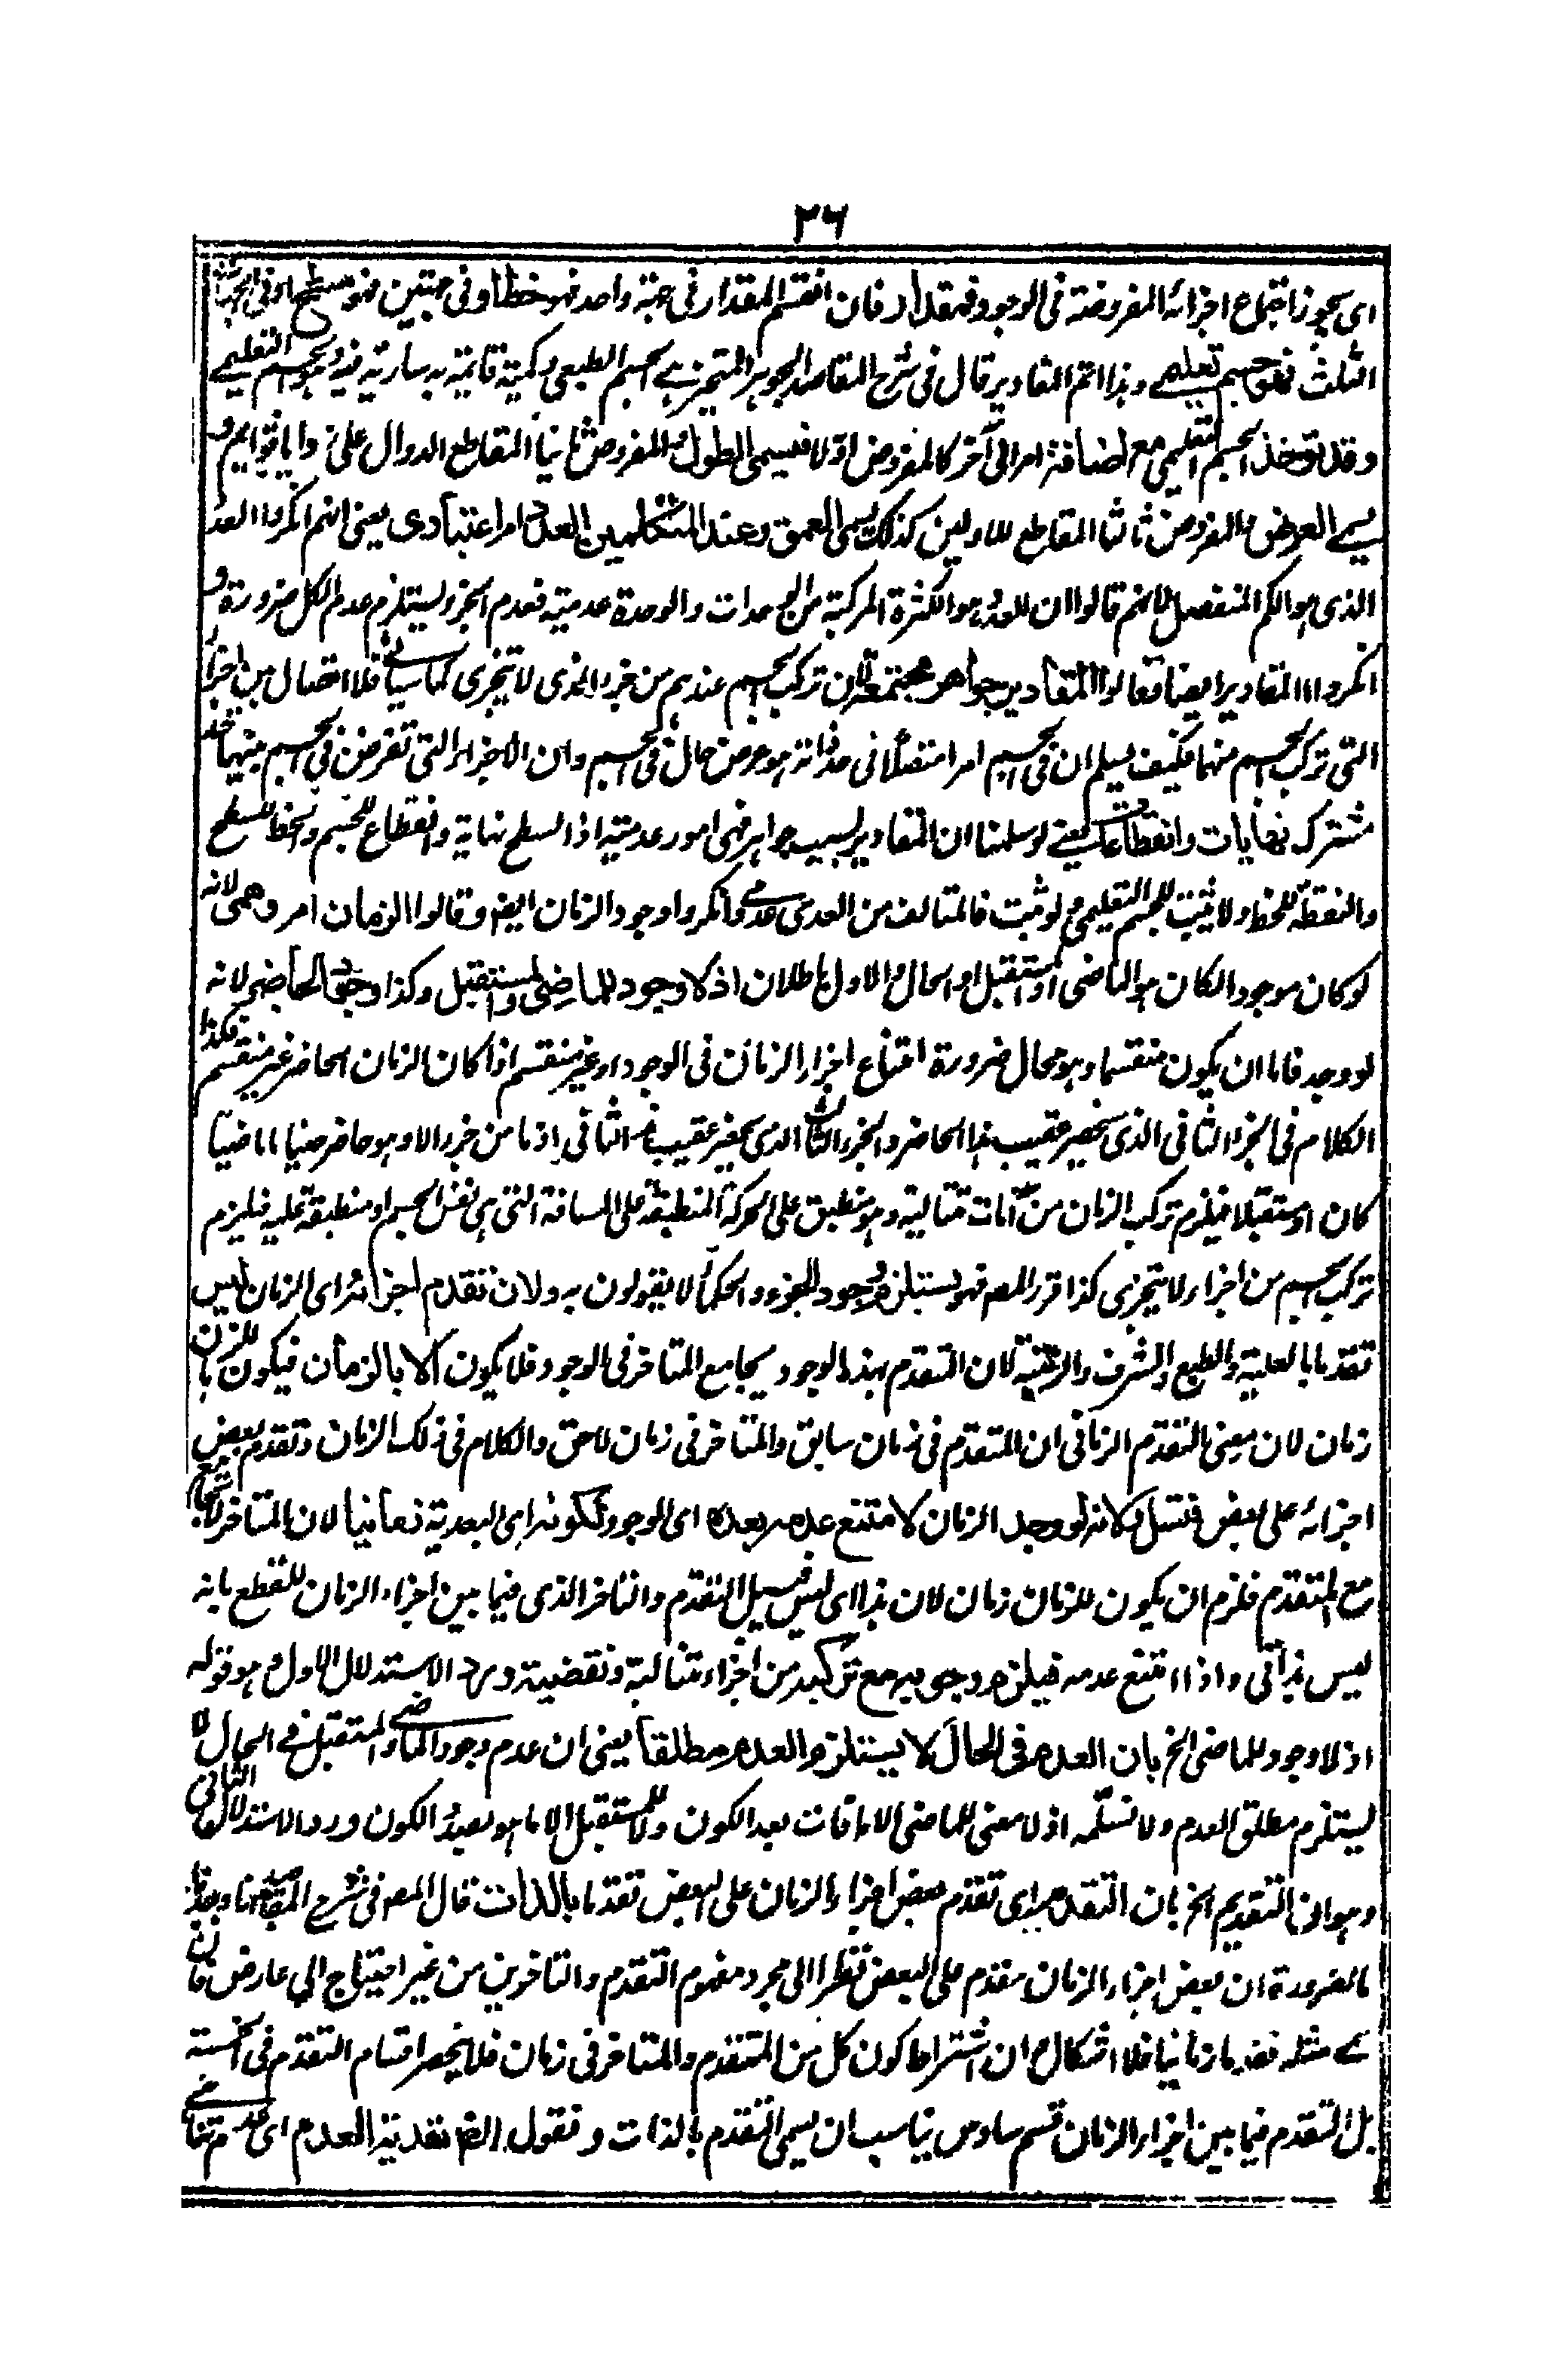 ٣٦
اى يجوز اجتماع اجزائه المفروضة فى الوجود فمقدار فان انقسم المقدار فى جهة واحدة فهو خط او فى جهتين فهو سطح او فى الجهات
الثلث فهو جسم تعليمى وهذا اتم المقادير قال فى شرح المقاصد الجوهر المتحيز هے الجسم الطبعى وكمية قائمة به سارية فيه هو الجسم التعليمے
وقد توخذ الجسم التعليمى مع اضافة امر الى آخر كالمفروض اولا فيسمى الطول والمفروض ثانيا المقاطع للاول على زوايا قوايم و
يسمے العرض والمفروض ثالثا المقاطع للاولين كذلك يسمى العمق وعند المتكلمين العدد امر اعتبارى يعنى انهم انكروا العدد
الذى هو الكم المنفصل لانهم قالوا ان العدد هو الكثرة المركبة من الوحدات والوحدة عدمية فعدم الجزء يستلزم عدم الكل ضرورة و
انكروا المقادير ايضا فقالوا المقادير جواهر مجتمعة لان تركب الجسم عندهم من جزء الذى لا يتجزى كما سياتے فلا اتصال بين اجزاء
التى تركب الجسم منها فكيف يسلم ان فى الجسم امرا متصلا فى حد ذاته هو عرض حال فى الجسم وان الاجزاء التى تفرض فى الجسم بينها حد
مشترك نهايات وانقطاعات يعنے لو سلمنا ان المقادير ليست جواهر فهى امور عدمية اذا السطح نهاية وانقطاع للجسم والخط للسطح
والنقطة للخط ولا يثبت الجسم التعليمى ولو ثبت فالمتالف من العدمى عدمے وانكروا وجود الزمان ايضا وقالوا الزمان امر وهمى لانه
لو كان موجودا لكان هو الماضى او المستقبل او الحال والاول باطلان اذ لا وجود للماضى والمستقبل وكذا وجود الحاضر لانه
لو وجد فاما ان يكون منقسما وهو محال ضرورة امتناع اجزاء الزمان فى الوجود او غير منقسم اذا كان الزمان الحاضر غير منقسم فكذا
الكلام فى الجزء الثانى الذى يحضر عقيب هذا الحاضر والجزء الثالث الذى يحضر عقيب الثانى اذ ما من جزء الا وهو حاضر حينا ما ماضيا
كان او مستقبلا فيلزم تركب الزمان من آنات متتالية وهو منطبق على الحركة المنطبقة على المسافة التى هى نفس الجسم او منطبقة عليه فيلزم
تركب الجسم من اجزاء لا يتجزى كذا قرر المصـ فهو يستلزم وجود الجزء والحكماء لا يقولون به ولان تقدم اجزائه اى الزمان ليس
تقدما بالعلية والطبع والشرف والرتبة لان المتقدم بهذه الوجود يجامع المتاخر فى الوجود فلا يكون الا بالزمان فيكون للزمان
زمان لان معنى التقدم الزمانى ان المتقدم فى زمان سابق والمتاخر فى زمان لاحق والكلام فى ذلك الزمان وتقدم بعض
اجزائه على بعض فتسلسل ولانه لو وجد الزمان لامتنع عدمه بعده اى الوجود لكونه اى البعدية زمانيا لان المتاخر لا يجامع
مع المتقدم فلزم ان يكون للزمان زمان لان هذا اى ليس قبيل التقدم والتاخر الذى فيما بين اجزاء الزمان للقطع بانه
ليس بذاتى واذا امتنع عدمه فيلزم وجوبه مع تركبه من اجزاء متتالية وتقضية ورد الاستدلال الاول وهو قوله
اذ لا وجود للماضى الخ بان العدم فى الحال لا يستلزم العدم مطلقا يعنى ان عدم وجود الماضى والمستقبل فے الحال لا
يستلزم مطلق العدم ولا نسلمه اذ لا معنى للماضى الا ما فات بعد الكون ولا للمستقبل الا ما هو بصدد الكون ورد الاستدلال الثانى
وهو ان التقديم الخ بان التقدم اى تقدم بعض اجزاء الزمان على البعض تقدما بالذات قال المصـ فى شرح المقاصد
بالضرورة ان بعض اجزاء الزمان مقدم على البعض نظرا الى مجرد مفهوم التقدم والتاخر من غير احتياج الى عارض فان
سے مثله تقدما زمانيا فلا اشكال وان اشتراط كون كل من المتقدم والمتاخر فى زمان فلا ينحصر اقسام التقدم فى الخمسة
بل التقدم فيما بين اجزاء الزمان قسم سادس يناسب ان يسمى التقدم بالذات ونقول ايضا بعدية العدم اى عدم